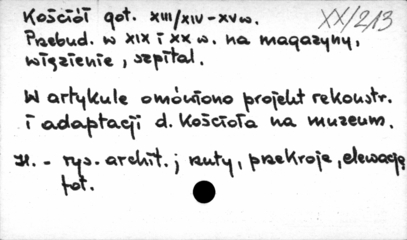 Kościół got. XIII/XIV-XV w.
XX/213
Przebud. w XIX i XX w. na magazyny,
więzienie, szpital.
W artykule omówiono projekt rekonstr.
i adaptacji d. Kościoła na muzeum.
Il. - rys. archit.; rzuty, przekroje, elewacja
fot.